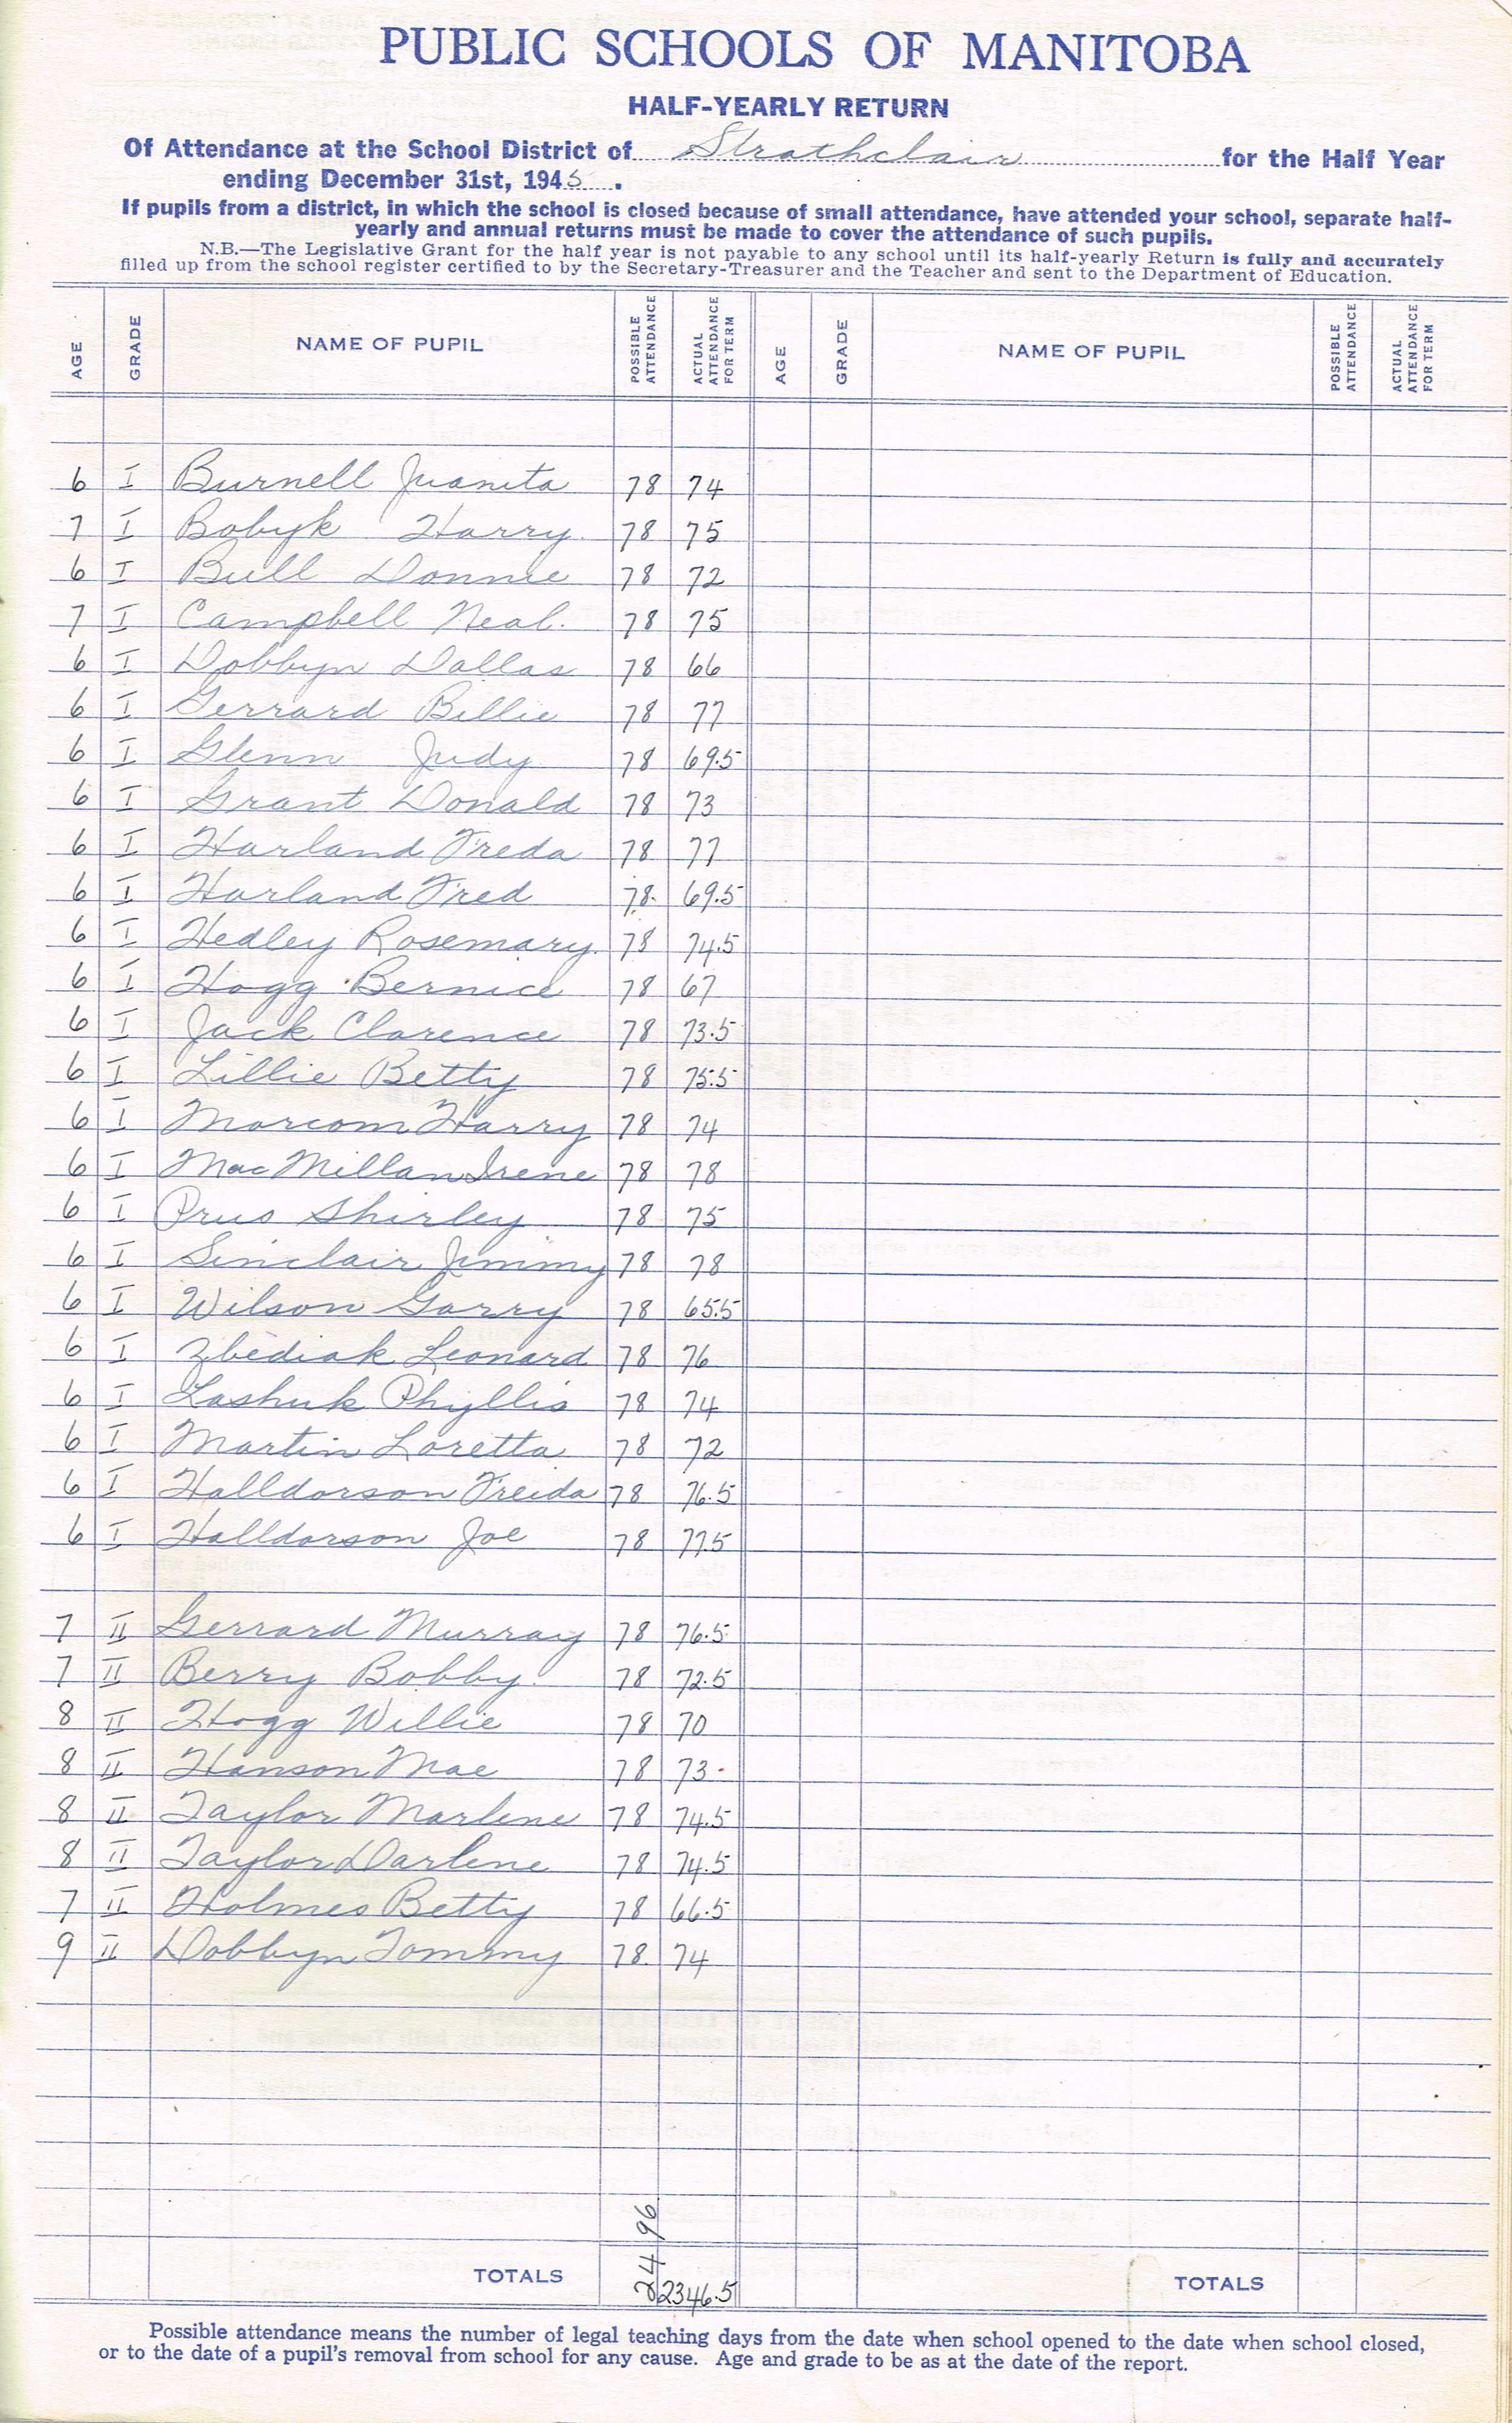 PUBLIC SCHOOLS OF MANITOBA
HALF-YEARLY RETURN
Of Attendance at the School District of Strathclair for the Half Year
ending December 31st, 1945.
If pupils from a district, in which the school is closed because of small attendance, have attended your school, separate half-
yearly and annual returns must be made to cover the attendance of such pupils.
N.B.—The Legislative Grant for the half year is not payable to any school until its half-yearly Return is fully and accurately
filled up from the school register certified to by the Secretary-Treasurer and the Teacher and sent to the Department of Education.
AGE GRADE NAME OF PUPIL POSSIBLE ATTENDANCE ACTUAL ATTENDANCE FOR TERM AGE GRADE NAME OF PUPIL POSSIBLE ATTENDANCE ACTUAL ATTENDANCE FOR TERM
6 I Burnell Juanita 78 74
7 I Bobyk Harry. 78 75
6 I Bull Donnie 78 72
7 I Campbell Neal. 78 75
6 I Dobbyn Dallas 78 66
6 I Gerrard Billie 78 77
6 I Glenn Judy 78 69.5
6 I Grant Donald 78 73
6 I Harland Freda 78 77
6 I Harland Fred 78. 69.5
6 I Hedley Rosemary. 78 74.5
6 I Hogg Bernice 78 67
6 I Jack Clarence 78 73.5
6 I Lillie Betty 78 75.5
6 I Marcom Harry 78 74
6 I MacMillan Irene 78 78
6 I Prus Shirley 78 75
6 I Sinclair Jimmy 78 78
6 I Wilson Garry 78 65.5
6 I Zbediak Leonard 78 76
6 I Lashuk Phyllis 78 74
6 I Martin Loretta 78 72
6 I Halldorson Freida 78 76.5
6 I Halldorson Joe 78 77.5
7 II Gerrard Murray 78 76.5
7 II Berry Bobby. 78 72.5
8 II Hogg Willie 78 70
8 II Hanson Mae 78 73
8 II Taylor Marlene 78 74.5
8 II Taylor Darlene 78 74.5
7 II Holmes Betty 78 66.5
9 II Dobbyn Tommy 78. 74
TOTALS 2496 2346.5 TOTALS
Possible attendance means the number of legal teaching days from the date when school opened to the date when school closed,
or to the date of a pupil's removal from school for any cause. Age and grade to be as at the date of the report.